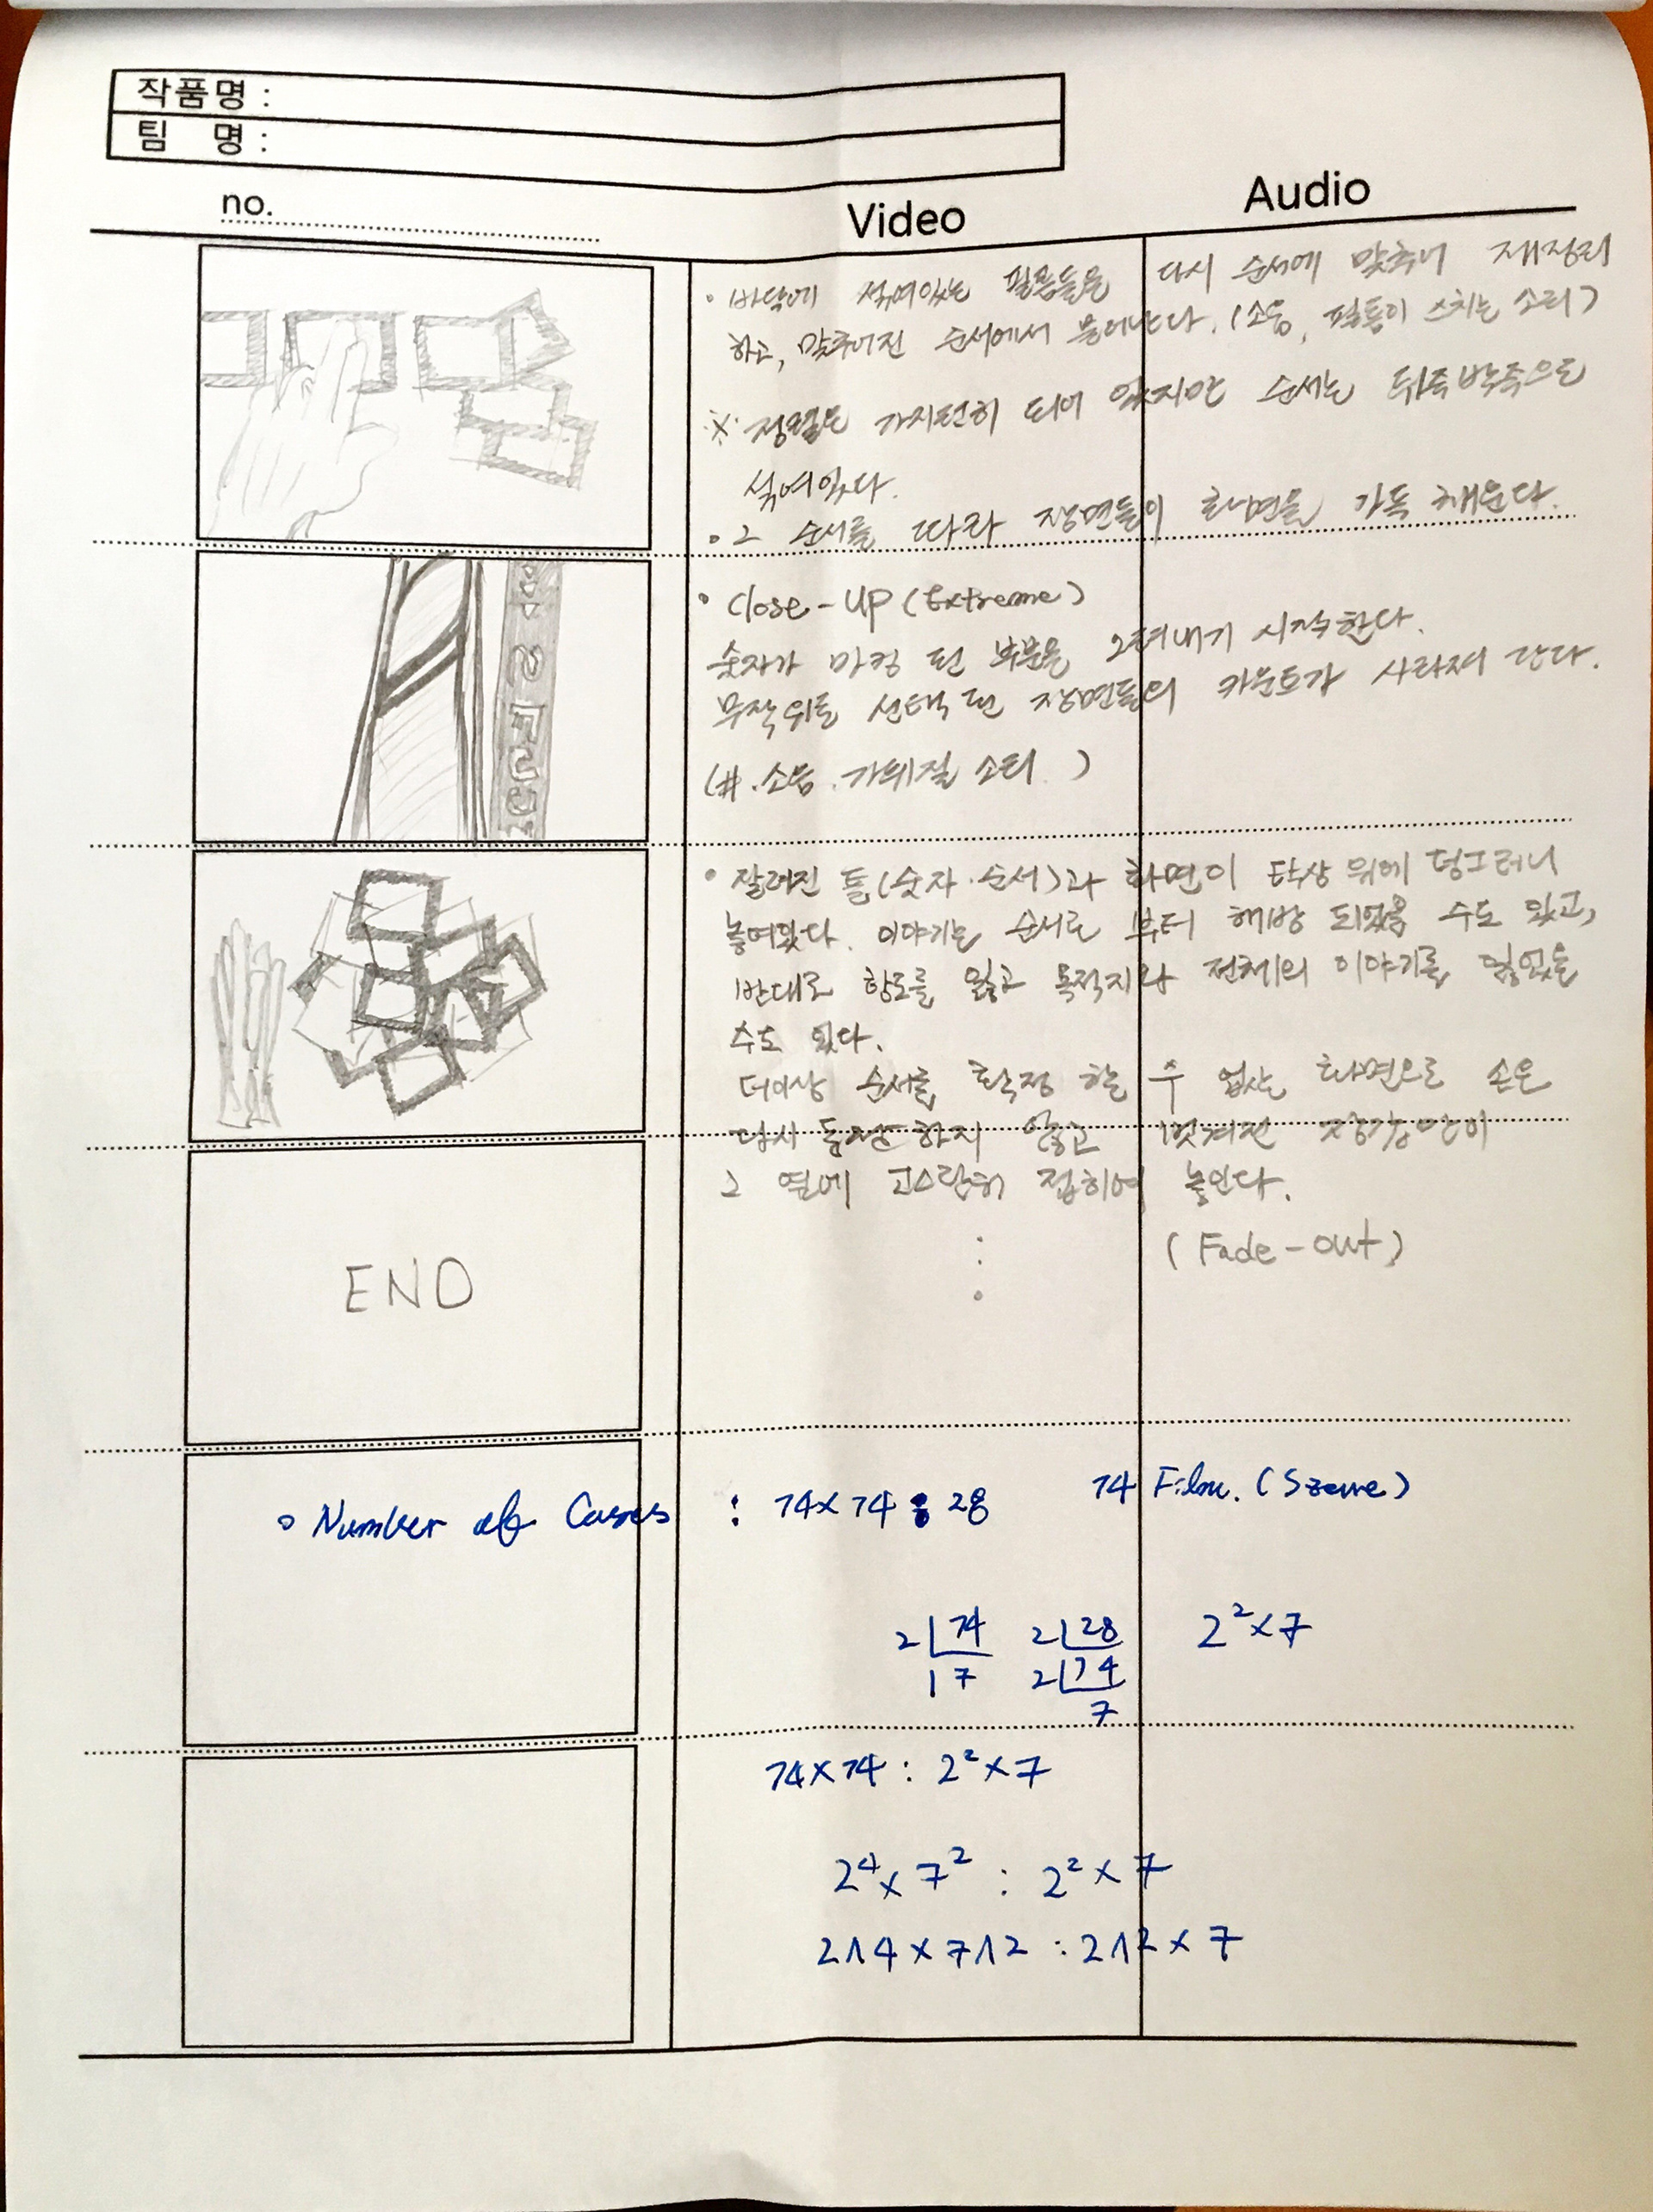 작품명 :
팀 명 :
no.
Video
Audio
• 바닥에 섞여있는 필름들을 다시 순서에 맞추어 재정리
하고, 맞추어진 순서에서 늘어난다. (소음, 필름이 스치는 소리)
※ 정렬은 가지런히 되어 있지만 순서는 뒤죽박죽으로
섞여있다.
• 그 순서를 따라 장면들이 화면을 가득 채운다.
• Close-UP (Extreme)
숫자가 마킹 된 부분을 오려내기 시작한다.
무작위로 선택 된 장면들의 카운트가 사라져 간다.
(#.소음. 가위질 소리.)
FUJ
• 잘려진 틀(숫자·순서)과 화면이 탁상 위에 덩그러니
놓여있다. 이야기는 순서로 부터 해방 되었을 수도 있고,
반대로 항로를 잃고 목적지와 전체의 이야기를 잃었을
수도 있다.
더이상 순서를 확정 할 수 없는 화면으로 손은
다시 등장하지 않고 벗겨진 장갑만이
그 옆에 고스란히 접히어 놓인다.
(Fade-out)
END
o Number of Cases : 74x74 : 28
74 Film. (Szene)
2 74 2 28 2²x7
17 2 14
7
74x74 : 2²x7
2⁴x7² : 2²x7
2∧4x7∧2 : 2∧2x7